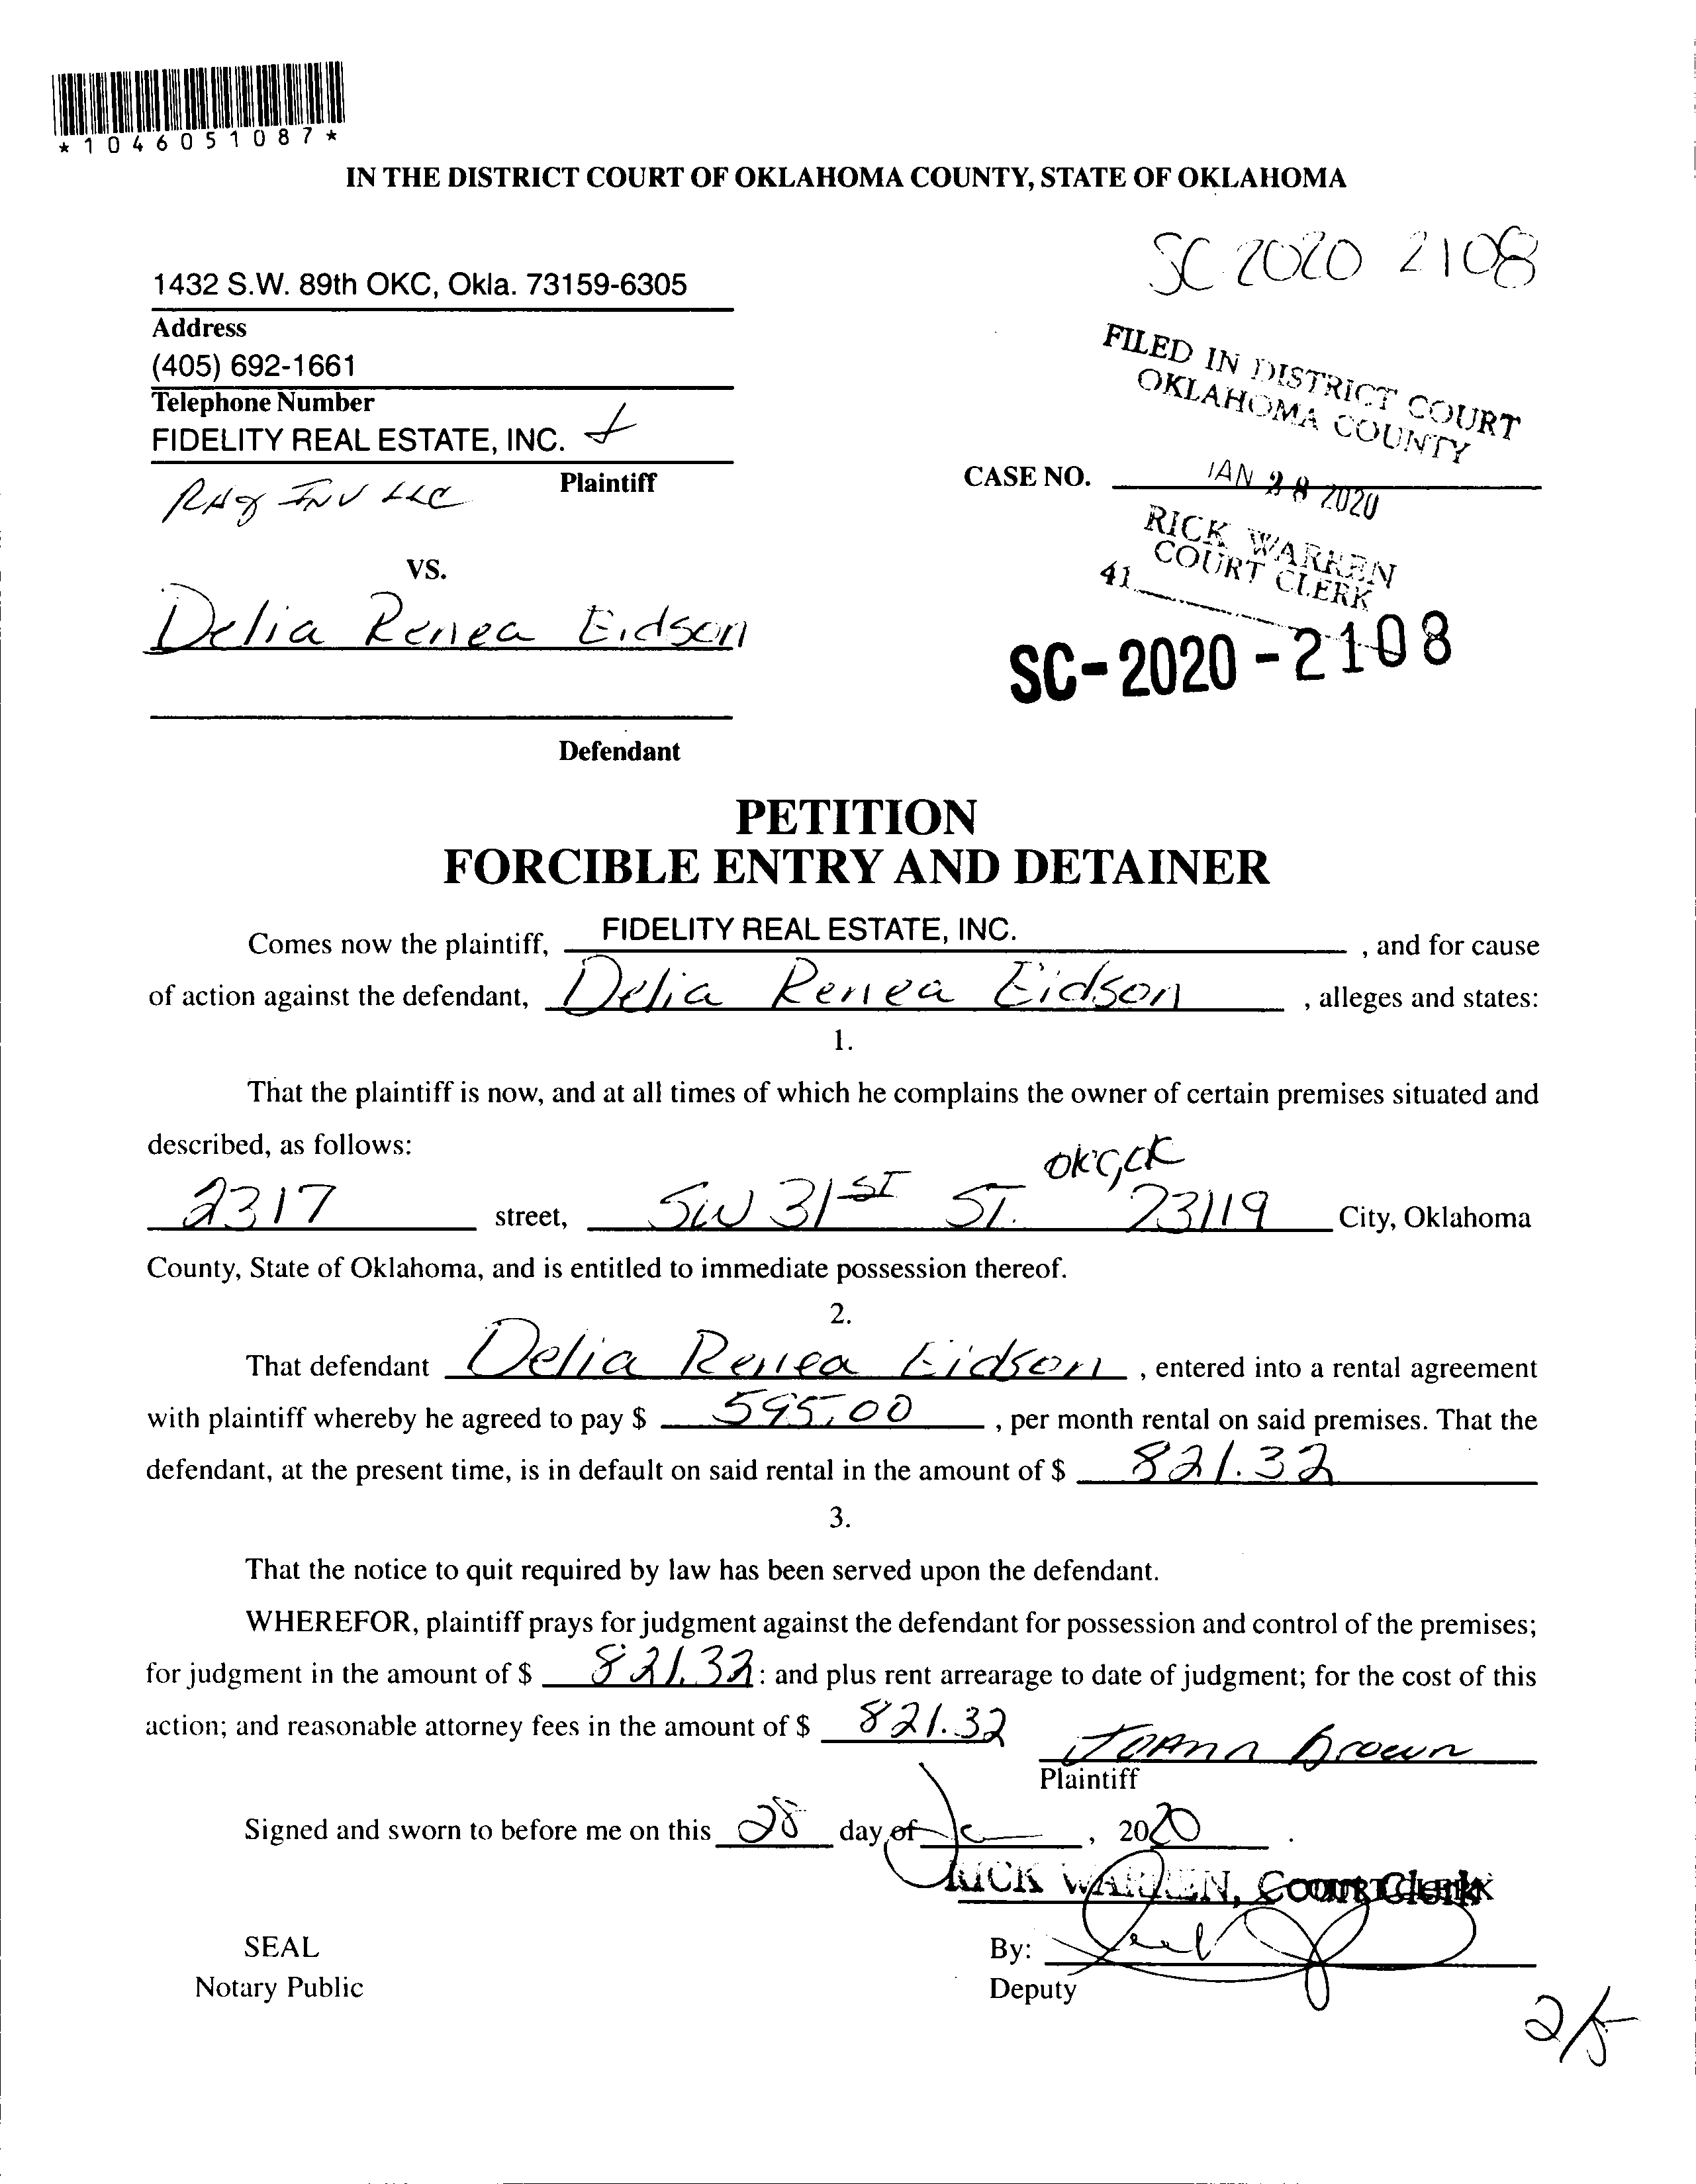 *1046051087*
IN THE DISTRICT COURT OF OKLAHOMA COUNTY, STATE OF OKLAHOMA
SC 2020 2108
1432 S.W. 89th OKC, Okla. 73159-6305
Address
(405) 692-1661
Telephone Number
FIDELITY REAL ESTATE, INC. +
Plaintiff
INV LLC
FILED IN DISTRICT COURT
OKLAHOMA COUNTY
CASE NO. JAN 28 2020
RICK WARREN
COURT CLERK
41
VS.
Delia Renea Eidson
SC-2020-2108
Defendant
PETITION
FORCIBLE ENTRY AND DETAINER
Comes now the plaintiff, FIDELITY REAL ESTATE, INC. , and for cause
of action against the defendant, Delia Renea Eidson , alleges and states:
1.
That the plaintiff is now, and at all times of which he complains the owner of certain premises situated and
described, as follows:
2317 street, SW 31ST ST. OKC, OK 73119 City, Oklahoma
County, State of Oklahoma, and is entitled to immediate possession thereof.
2.
That defendant Delia Renea Eidson , entered into a rental agreement
with plaintiff whereby he agreed to pay $ 595.00 , per month rental on said premises. That the
defendant, at the present time, is in default on said rental in the amount of $ 821.32
3.
That the notice to quit required by law has been served upon the defendant.
WHEREFOR, plaintiff prays for judgment against the defendant for possession and control of the premises;
for judgment in the amount of $ 821.32 : and plus rent arrearage to date of judgment; for the cost of this
action; and reasonable attorney fees in the amount of $ 821.32
JoAnn Brown
Plaintiff
Signed and sworn to before me on this 28 day of , 2020 .
RICK WARREN, Court Clerk
SEAL
By:
Notary Public
Deputy
2/5